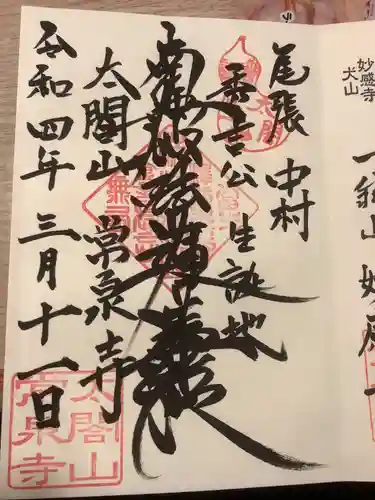 妙感寺
犬山
尾張 中村
秀吉公 生誕地
南無妙法蓮華経
太閤山 常泉寺
令和四年 三月十一日
太閤
太閤山
常泉寺